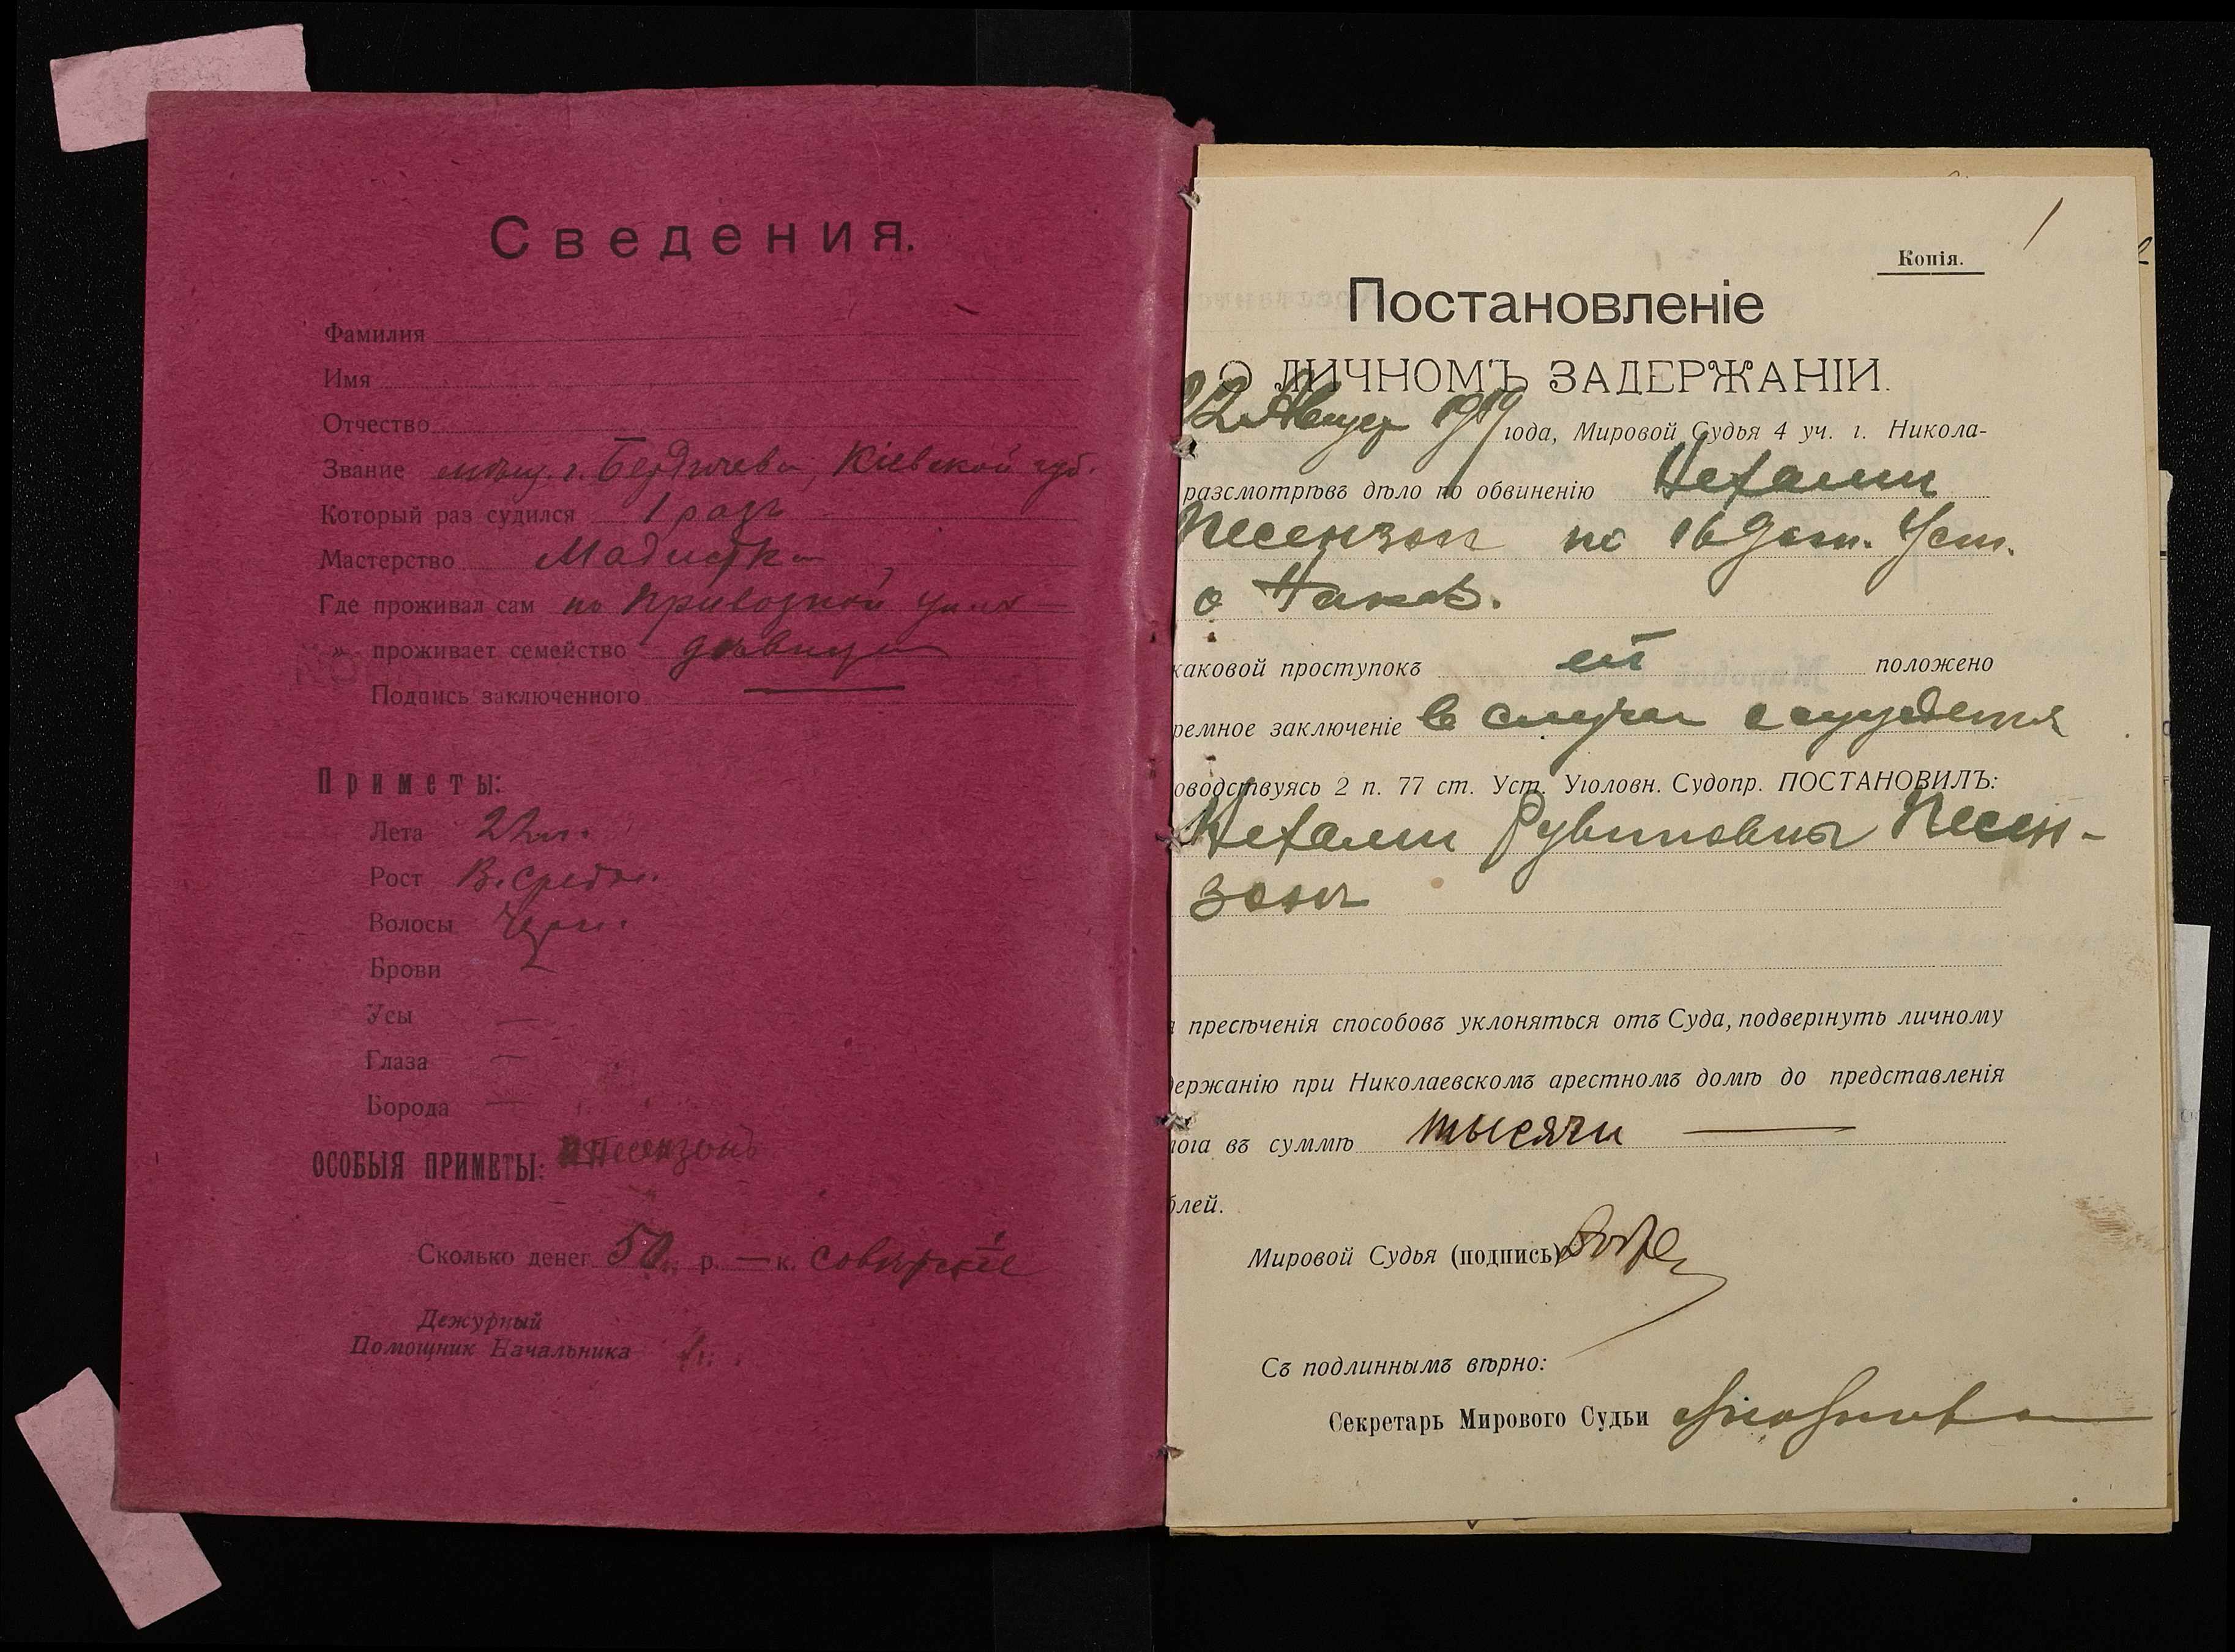 Сведения.
Фамилия
Имя
Отчество
Звание мѣщ. г. Бердичева, Кіевской губ.
Который раз судился 1 разъ
Мастерство Модистка
Где проживал сам по Привозной улиц
" проживает семейство дѣвица
Подпись заключенного
Приметы:
Лета 22 л.
Рост В. средн.
Волосы Черн.
Брови
Усы —
Глаза —
Борода —
ОСОБЫЯ ПРИМЕТЫ: Песензонъ
Сколько денег 50 р. — к. совѣтскіе
Дежурный
Помощник Начальника
1
Копія.
Постановленіе
О ЛИЧНОМЪ ЗАДЕРЖАНІИ.
22 Август 1919 года, Мировой Судья 4 уч. г. Никола-
разсмотрѣвъ дѣло по обвиненію Нехами
Песензон по 169 ст. Уст.
о Наказ.
каковой проступокъ ей положено
ремное заключеніе в случае осуждения
оводствуясь 2 п. 77 ст. Уст. Уголовн. Судопр. ПОСТАНОВИЛЪ:
Нехами Рувиновны Песен-
зон
пресѣченія способовъ уклоняться отъ Суда, подвергнуть личному
держанію при Николаевскомъ арестномъ домѣ до представленія
лога въ суммѣ тысячи —
блей.
Мировой Судья (подпись)
Съ подлиннымъ вѣрно:
Секретарь Мирового Судьи